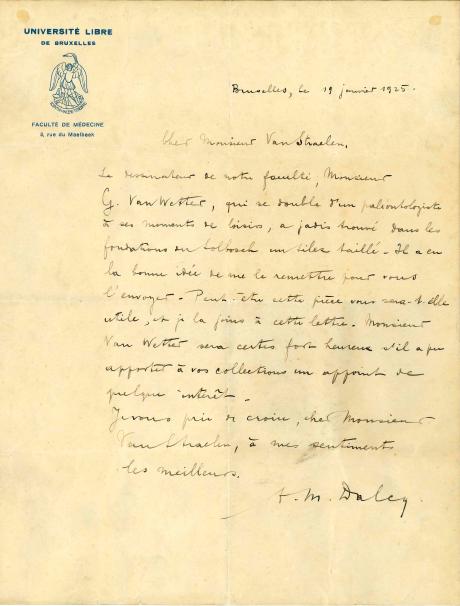 UNIVERSITÉ LIBRE
DE BRUXELLES
FACULTÉ DE MÉDECINE
3, rue du Maelbeek
Bruxelles, le 19 janvier 1925.
Cher Monsieur Van Straelen,
Le dessinateur de notre faculté, Monsieur
G. Van Wetter, qui se double d'un paléontologiste
à ses moments de loisis, a jadis trouvé dans les
fondations du Solbosch un silex taillé. Il a eu
la bonne idée de me le remettre pour vous
l'envoyer. Peut-être cette pièce vous sera-t-elle
utile, et je la joins à cette lettre. Monsieur
Van Wetter sera certes fort heureux s'il a pu
apporter à vos collections un appoint de
quelque intérêt.
Je vous prie de croire, cher Monsieur
Van Straelen, à mes sentiments
les meilleurs.
A. M. Dalcq.